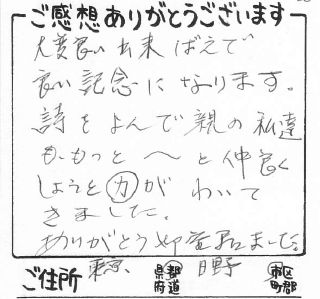 ご感想ありがとうございます
大変良い出来ばえで
良い記念になります。
詩をよんで親の私達
も、もっと〜と仲良く
しようと力がわいて
きました。
ありがとう御座居ました。
ご住所 東京 都道府県 日野 市区町郡